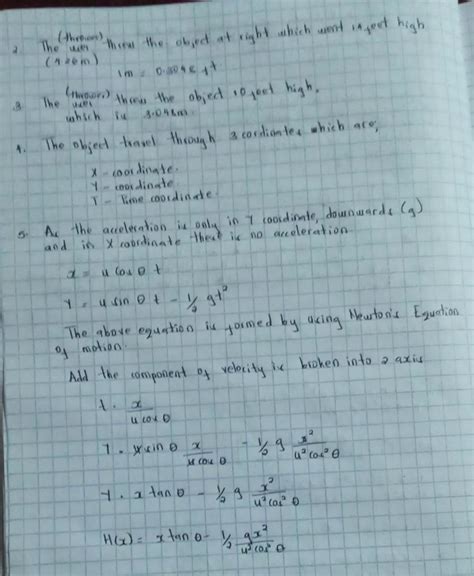 (thrower)
2. The user threw the object at right which went 14 feet high
(4.26m)
1m = 0.3048 ft
(thrower)
3. The user threw the object 10 feet high,
which is 3.048m.
4. The object travel through 3 cordiantes which are,
X - coordinate.
Y - coordinate
T - Time coordinate.
5. As the acceleration is only in Y coordinate, downwards (g)
and in X coordinate there is no acceleration
x = u cos θ t
Y = u sin θ t - 1/2 gt²
The above equation is formed by using Newton's Equation
of motion.
Add the component of velocity is broken into 2 axis
t = x / u cos θ
Y = u sin θ x / u cos θ - 1/2 g x² / u² cos² θ
Y = x tan θ - 1/2 g x² / u² cos² θ
H(x) = x tan θ - 1/2 gx² / u² cos² θ